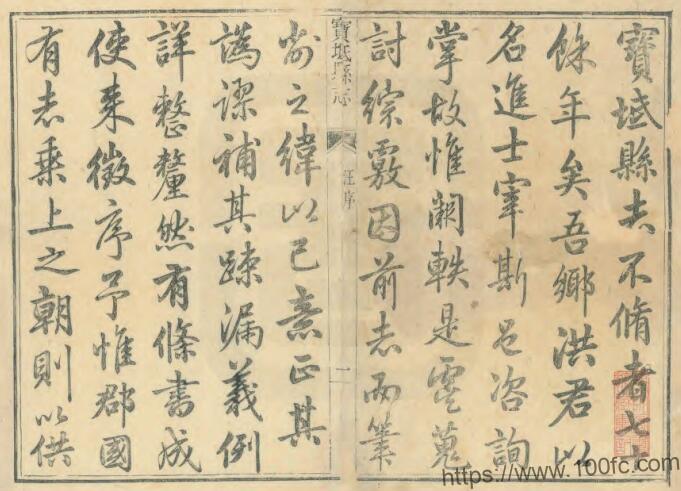 寶坻縣志不脩者七十
餘年矣吾鄉洪君以
名進士宰斯邑咨詢
掌故惟闕軼是虞蒐
討綜覈因前志而筆
寶坻縣志
汪序
一
削之緯以己意正其
譌謬補其踈漏義例
詳整釐然有條書成
使来徵序予惟郡國
有志乗上之朝則以供
https://www.100fc.com